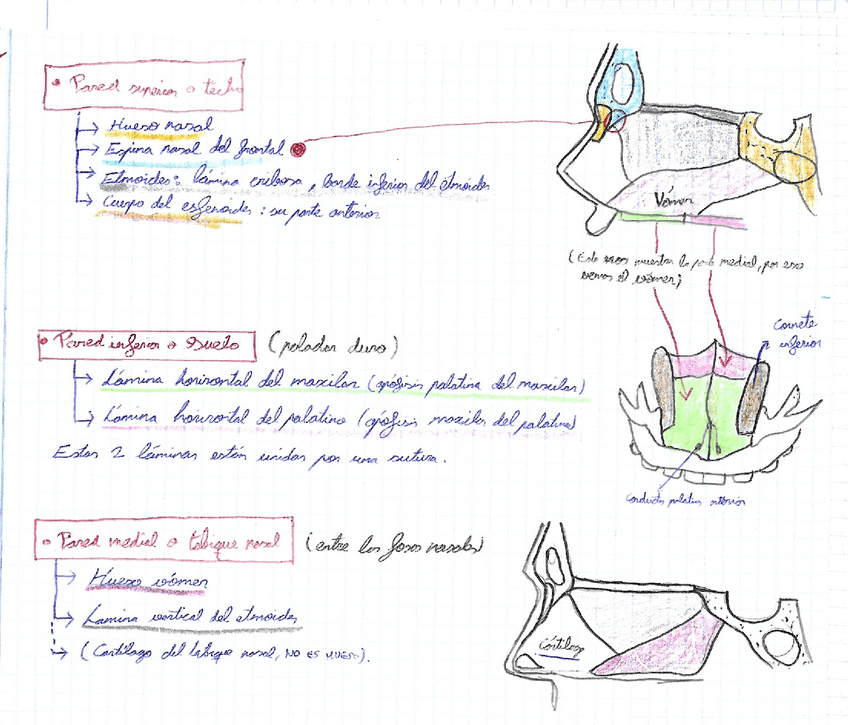 • Pared superior o techo
Hueso nasal
Espina nasal del frontal
Etmoides: lámina cribosa, borde inferior del etmoides
Cuerpo del esfenoides: su parte anterior
Vómer
(Esto nos muestra la parte medial, por eso
vemos el vómer)
• Pared inferior o Suelo (paladar duro)
Cornete
inferior
Lámina horizontal del maxilar (apófisis palatina del maxilar)
Lámina horizontal del palatino (apófisis maxilar del palatino)
Estas 2 láminas están unidas por una sutura.
Conducto palatino anterior
• Pared medial o tabique nasal (entre las fosas nasales)
Hueso vómer
Lamina vertical del etmoides
(Cartílago del tabique nasal, NO ES HUESO).
Cartílago